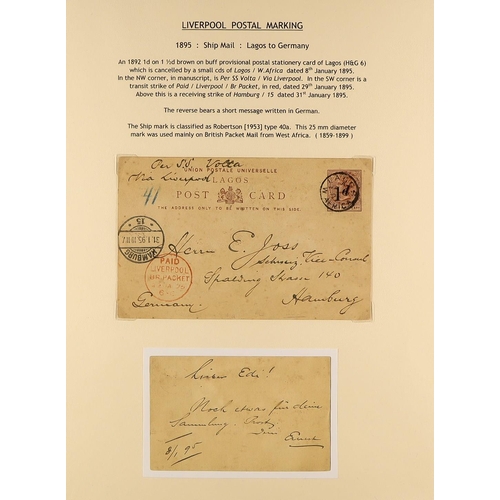 LIVERPOOL POSTAL MARKING
1895 : Ship Mail : Lagos to Germany
An 1892 1d on 1 ½d brown on buff provisional postal stationery card of Lagos (H&G 6)
which is cancelled by a small cds of Lagos / W.Africa dated 8th January 1895.
In the NW corner, in manuscript, is Per SS Volta / Via Liverpool. In the SW corner is a
transit strike of Paid / Liverpool / Br Packet, in red, dated 29th January 1895.
Above this is a receiving strike of Hamburg / 15 dated 31st January 1895.
The reverse bears a short message written in German.
The Ship mark is classified as Robertson [1953] type 40a. This 25 mm diameter
mark was used mainly on British Packet Mail from West Africa. ( 1859-1899 )
Per S.S. Volta
Via Liverpool
UNION POSTALE UNIVERSELLE
LAGOS
POST CARD
THE ADDRESS ONLY TO BE WRITTEN ON THIS SIDE.
1d
W. AFRICA
HAMBURG
15
31.1.95
PAID
LIVERPOOL
BR PACKET
Herrn E. Joss
Schweiz. Vice-Consul
140
Hamburg
Germany.
Edi!
Noch etwas für deine
Sammlung. Prosit
Dein Ernst
8/1 95